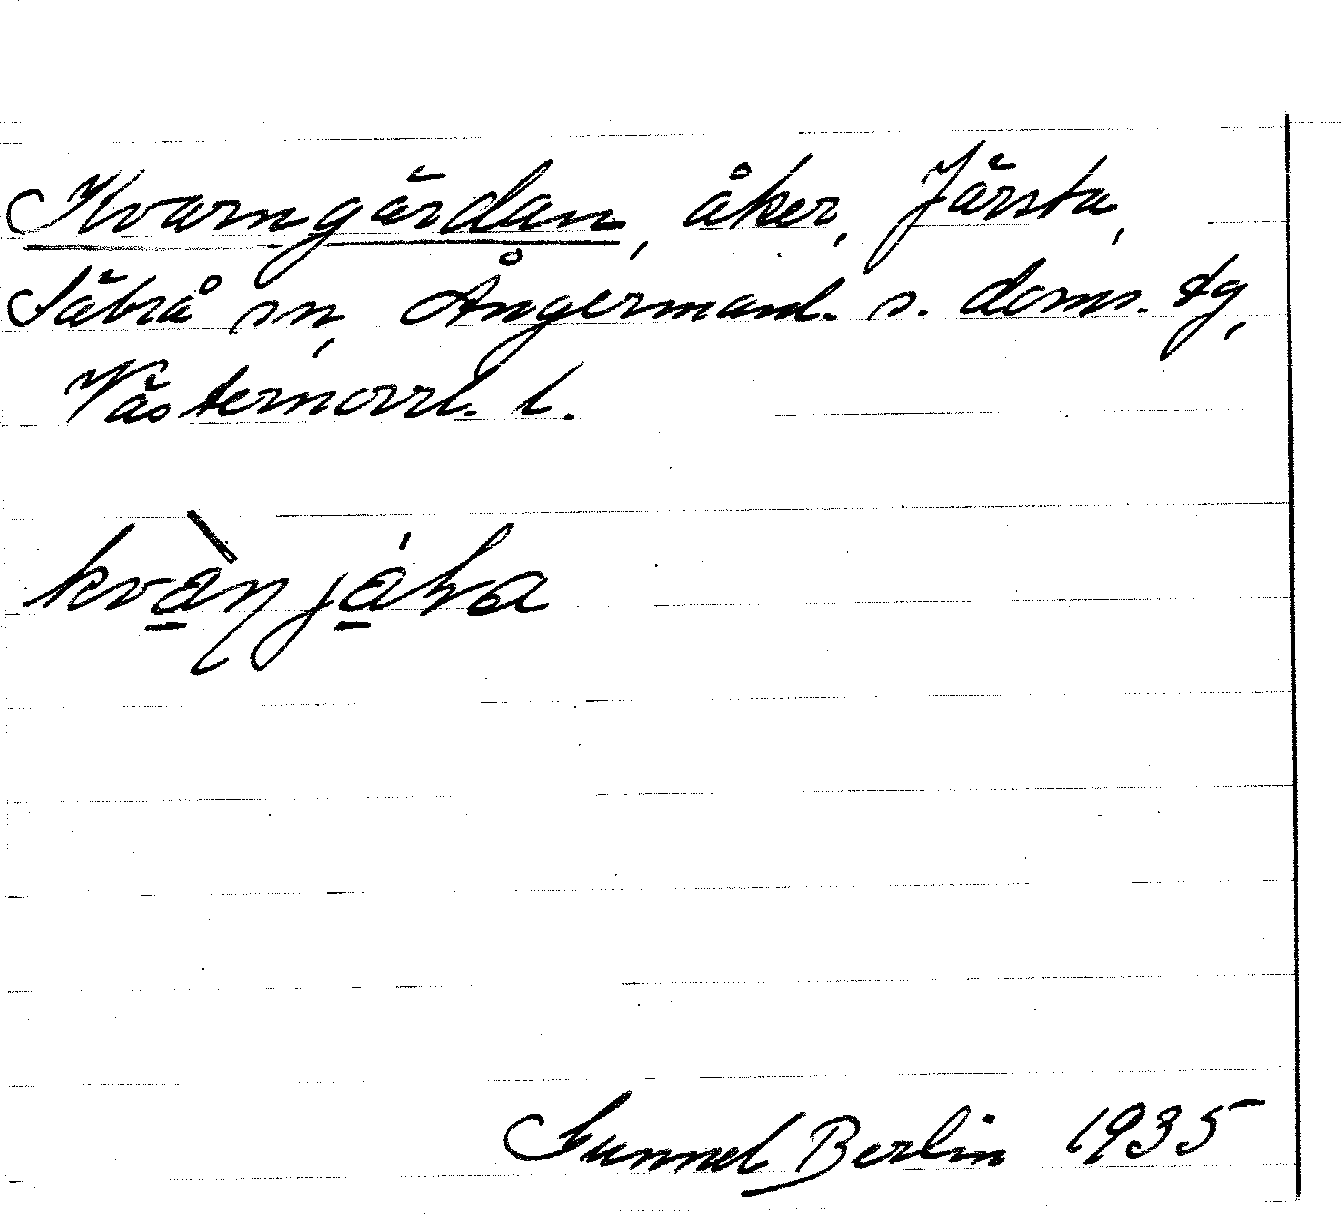 Kvarngärdan, åker, Järsta,
Säbrå sn, Ångermanl. s. doms. tg,
Västernorrl. l.
Sunnel Berlin 1935